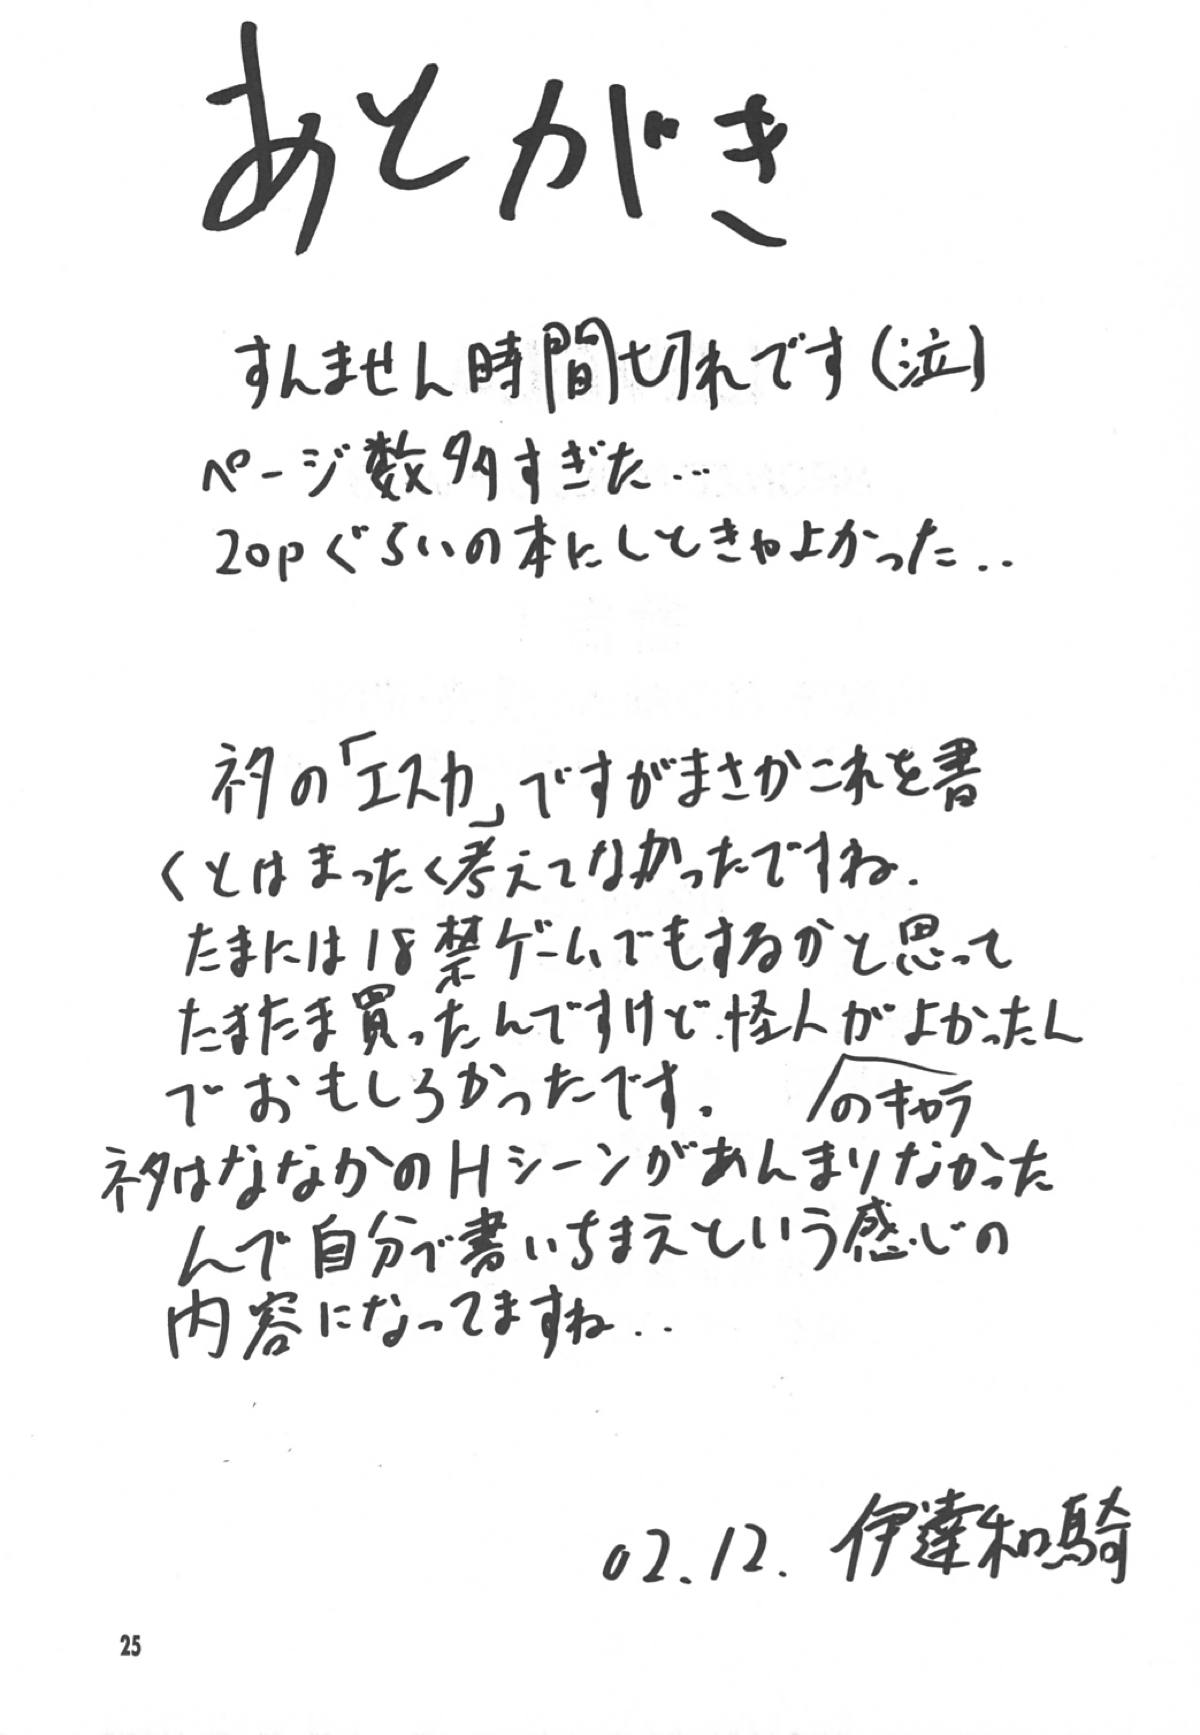 あとがき
すんません時間切れです(泣)
ページ数多すぎた…
20pぐらいの本にしときゃよかった..
ネタの「エスカ」ですがまさかこれを書
くとはまったく考えてなかったですね.
たまには18禁ゲームでもするかと思って
たまたま買ったんですけど.怪人がよかったん
でおもしろかったです.
のキャラ
ネタはななかのHシーンがあんまりなかった
んで自分で書いちまえという感じの
内容になってますね..
02.12. 伊達和騎
25